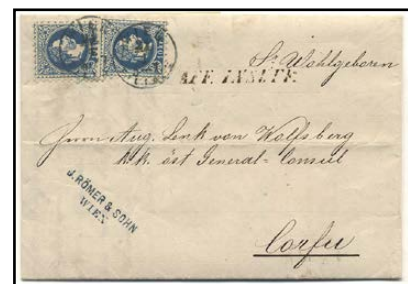 Sr. Wohlgeboren
Herrn Aug. Lenk von Wolfsberg
k.k. öst General-Consul
J. RÖMER & SOHN
WIEN
Corfu